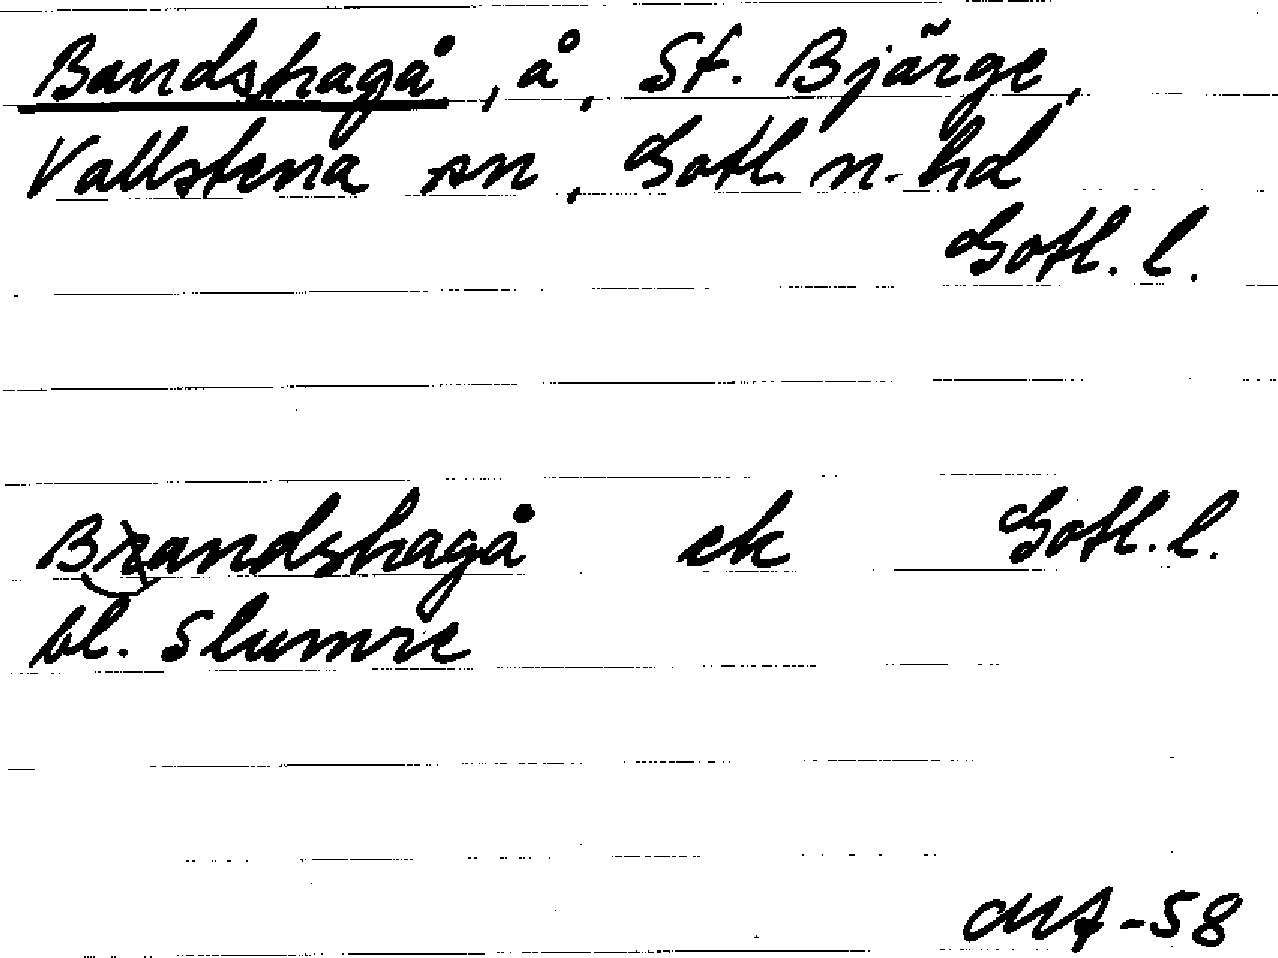 Bandshagå, å, St. Bjärge,
Vallstena sn, Gotl. n. hd
Gotl. l.
Brandshagå ek Gotl. l.
bl. Slumre
MA-58